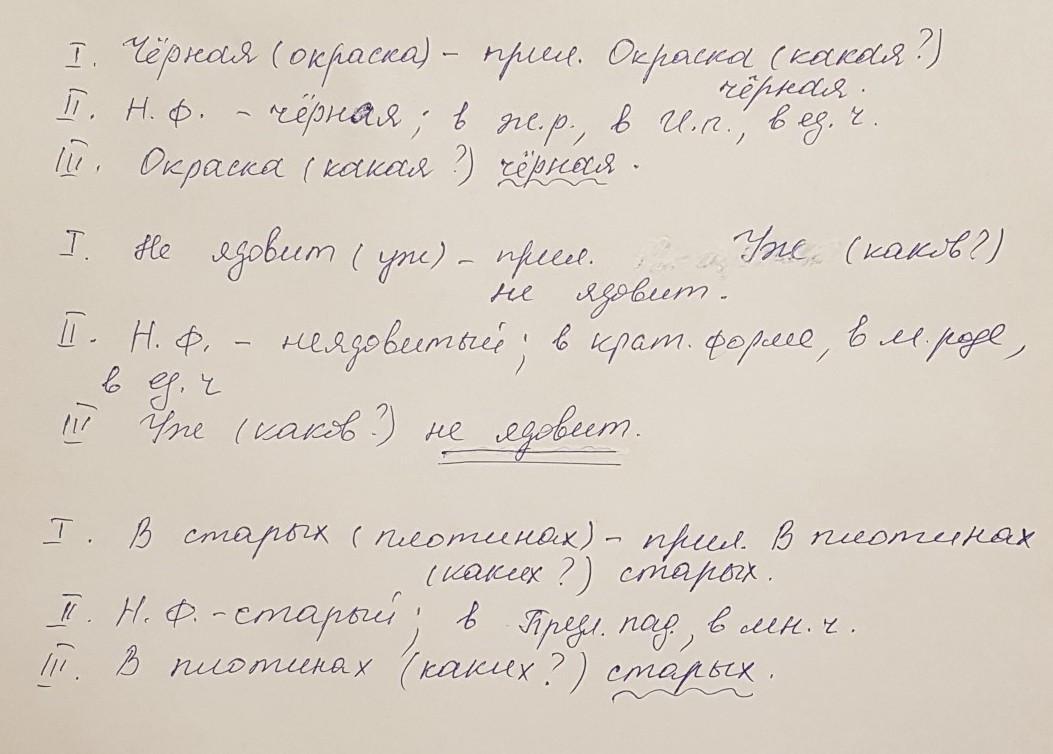 I. Чёрная (окраска) - прил. Окраска (какая?)
чёрная.
II. Н. Ф. - чёрная; в ж.р., в И.п., в ед. ч.
III. Окраска (какая?) чёрная.
I. Не ядовит (уж) - прил. Уж (каков?)
не ядовит.
II. Н. Ф. - неядовитый; в крат. форме, в м. роде,
в ед. ч
III Уж (каков?) не ядовит.
I. В старых (плотинах) - прил. В плотинах
(каких?) старых.
II. Н. Ф. - старый; в Предл. пад., в мн. ч.
III. В плотинах (каких?) старых.